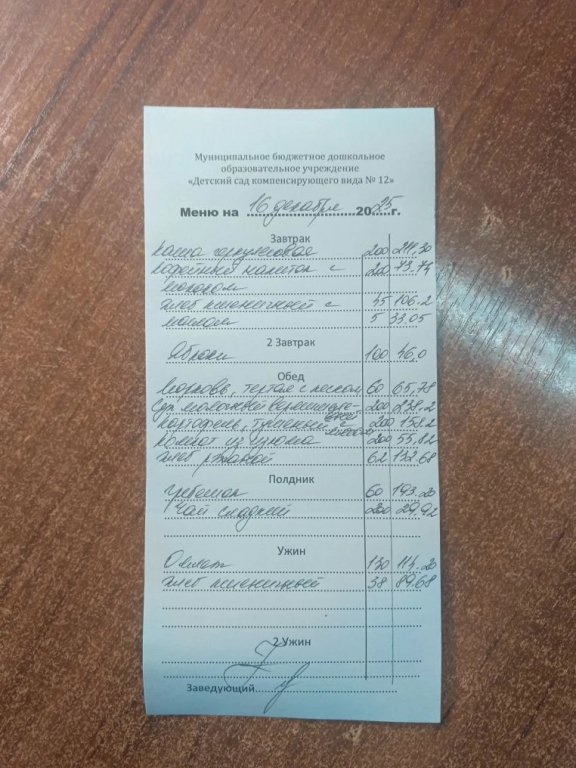 Муниципальное бюджетное дошкольное
образовательное учреждение
«Детский сад компенсирующего вида № 12»
Меню на 16 декабря 2025г.
Завтрак
Каша геркулесовая 200
Кофейный напиток с 200 73,74
молоком
Хлеб пшеничный с 45 106.2
маслом 5 33.05
2 Завтрак
Яблоки 100 46,0
Обед
Морковь, тертая с песком 60 65,78
Суп молочный 200 238.2
Картофель, тушеный с мясом 200
Компот из изюма 200 55,82
Хлеб ржаной 62 132,68
Полдник
Гребешок 60 193.20
Чай сладкий 200 29,92
Ужин
Омлет 130 114.20
Хлеб пшеничный 38 89.68
2 Ужин
Заведующий